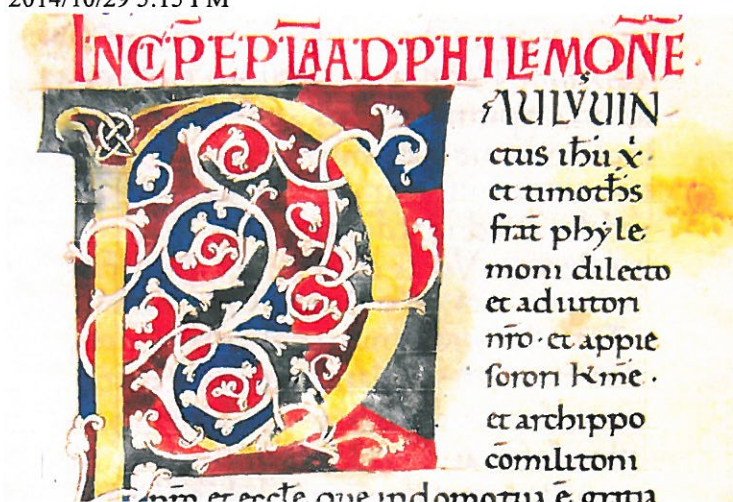 2014/10/29 5:15 PM
INCIP̄ EPL̄A AD PHILEMONĒ
PAULVS UIN
ctus ih̄u x̄·
et timoth̄s
frat̄ phẏle
moni dilecto
et adiutori
nr̄o· et appie
sorori km̄e·
et archippo
cōmilitoni
nr̄m et eccl̄e que in domo tua ē gratia